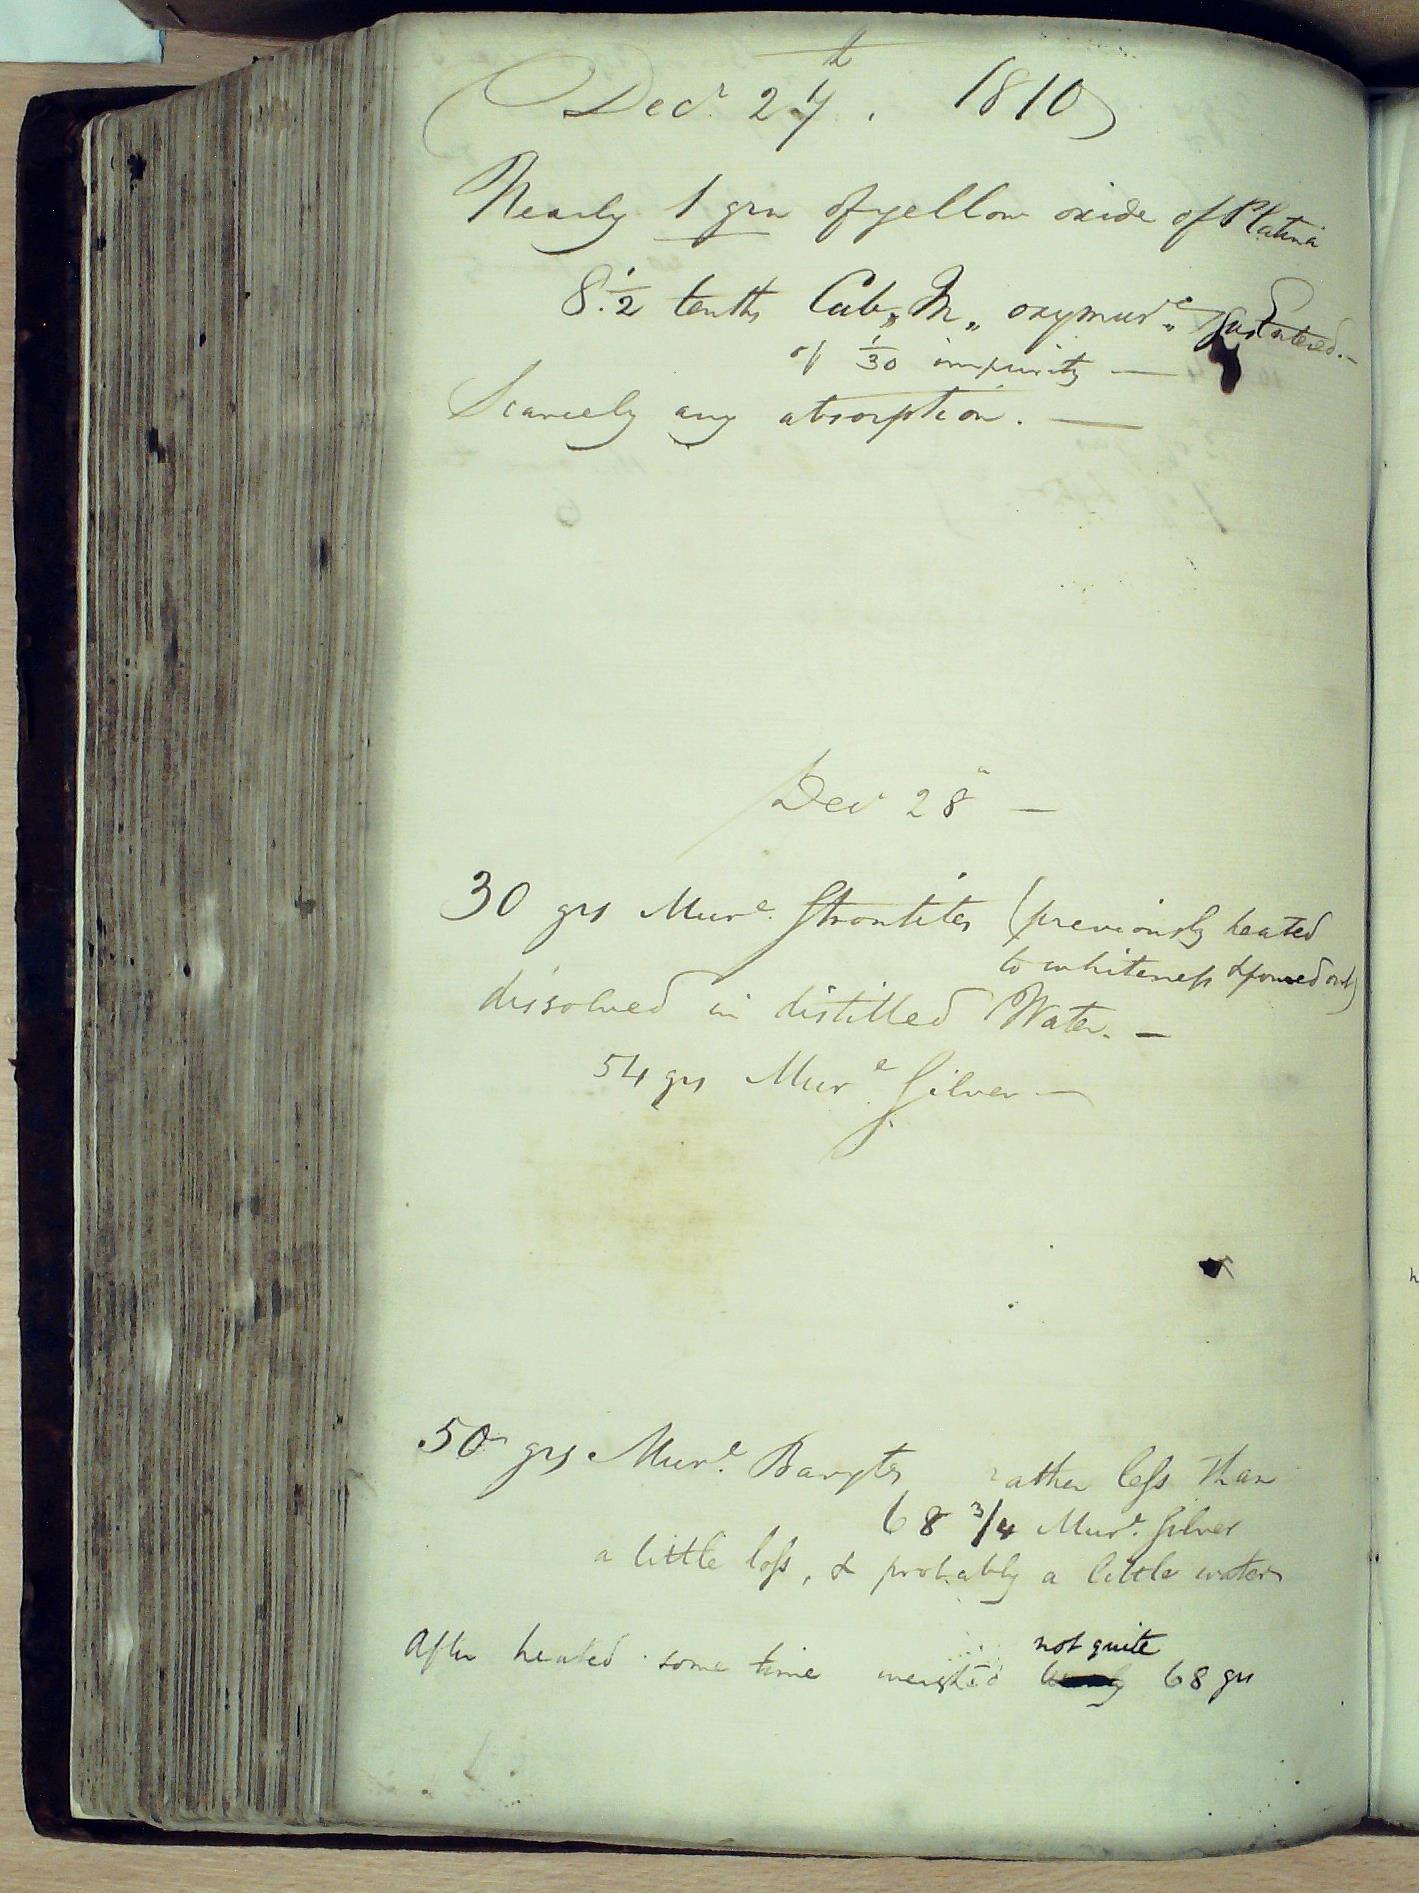 Decr. 27th. 1810
Nearly 1 grn of yellow oxide of Platina
8 1/2 tenths Cub,, In,, oxymure,, Gas Entered. —
of 1/30 impurity —
Scarcely any absorption. —
Decr 28 —
30 grs Mure. Strontites (previously heated
to whiteness & poured out)
dissolved in distilled Water. —
54 grs Mure Silver —
50 grs Mure. Barytes rather less than
68 3/4 Mure. Silver
a little loss, & probably a little water
not quite
After heated some time weighed 68 grs